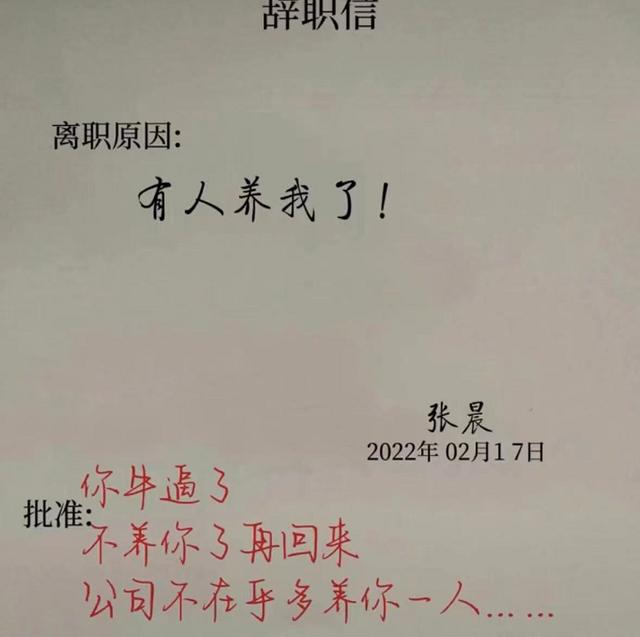 辞职信
离职原因:
有人养我了!
张晨
2022年 02月17日
你牛逼了
批准:
不养你了再回来
公司不在乎多养你一人……